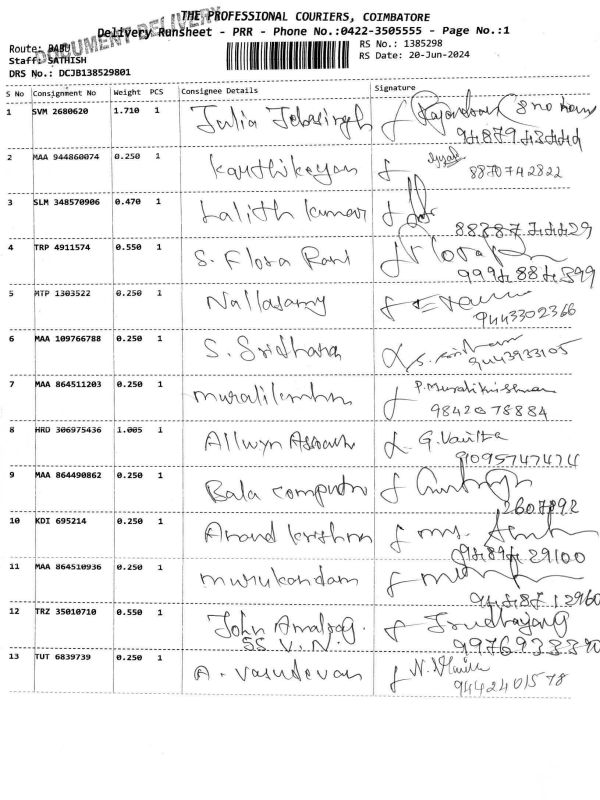 THE PROFESSIONAL COURIERS, COIMBATORE
DOCUMENT DELIVERY
Delivery Runsheet - PRR - Phone No.:0422-3505555 - Page No.:1
Route: BABU
RS No.: 1385298
Staff: SATHISH
RS Date: 20-Jun-2024
DRS No.: DCJB138529801
S No Consignment No Weight PCS Consignee Details Signature
1 SVM 2680620 1.710 1 Julia Jebasingh
2 MAA 944860074 0.250 1 Karthikeyan
8870742822
3 SLM 348570906 0.470 1 Lalith Kumar
4 TRP 4911574 0.550 1 S. Flora Rani Flora
5 MTP 1303522 0.250 1 Nallasamy
9443302366
6 MAA 109766788 0.250 1 S. Sridhara
9443933105
7 MAA 864511203 0.250 1 P. Muralikrishnan
9842078884
8 HRD 306975436 1.005 1 Allwyn G. Vanitha
9095747474
9 MAA 864490862 0.250 1 Bala computer
2607892
10 KDI 695214 0.250 1 Anand Krishna
11 MAA 864510936 0.250 1
12 TRZ 35010710 0.550 1 John
SS V.N.
13 TUT 6839739 0.250 1 A. Vasudevan
9442401578